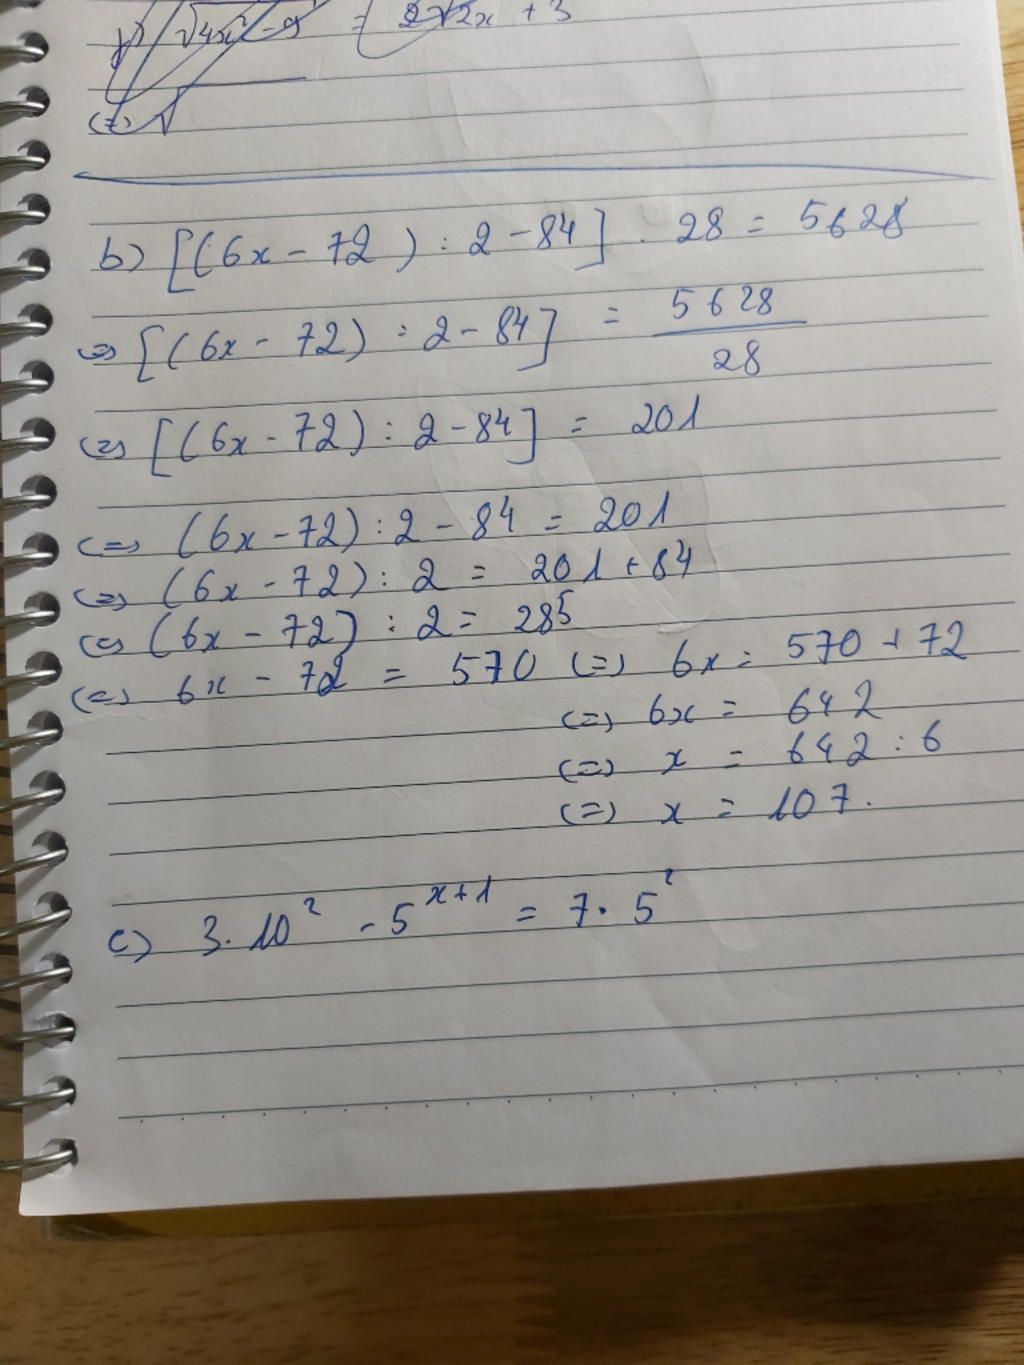 √4x² - 9 = 2√2x + 3
(=) √
b) [(6x - 72) : 2 - 84] . 28 = 5628
(=) [(6x - 72) : 2 - 84] = 5628 / 28
(=) [(6x - 72) : 2 - 84] = 201
(=) (6x - 72) : 2 - 84 = 201
(=) (6x - 72) : 2 = 201 + 84
(=) (6x - 72) : 2 = 285
(=) 6x - 72 = 570 (=) 6x = 570 + 72
(=) 6x = 642
(=) x = 642 : 6
(=) x = 107.
c) 3. 10² - 5^(x+1) = 7. 5²